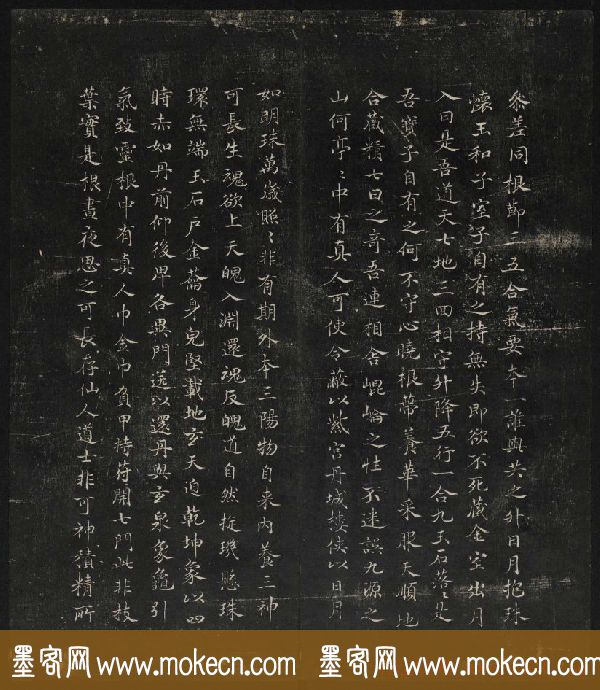 參差同根節三五合氣要本一誰與共之升日月抱珠
懷玉和子室子自有之持無失即欲不死藏金室出月
入日是吾道天七地三回相守升降五行一合九玉石落〻是
吾寶子自有之何不守心曉根蒂養華采服天順地
合藏精七日之奇吾連相舍崐崘之性不迷誤九源之
山何亭〻中有真人可使令蔽以紫宮丹城樓俠以日月
如明珠萬歲照〻非有期外本三陽物自来內養三神
可長生魂欲上天魄入淵還魂反魄道自然㨁璣懸珠
環無端玉石戶金籥身完堅載地玄天迫乾坤象以四
時赤如丹前仰後卑各異門送以還丹與玄泉象龜引
氣致靈根中有真人巾金巾負甲持符開七門此非枝
葉實是根晝夜思之可長存仙人道士非可神積精所
墨客网 www.mokecn.com 墨客网 www.mokecn.com